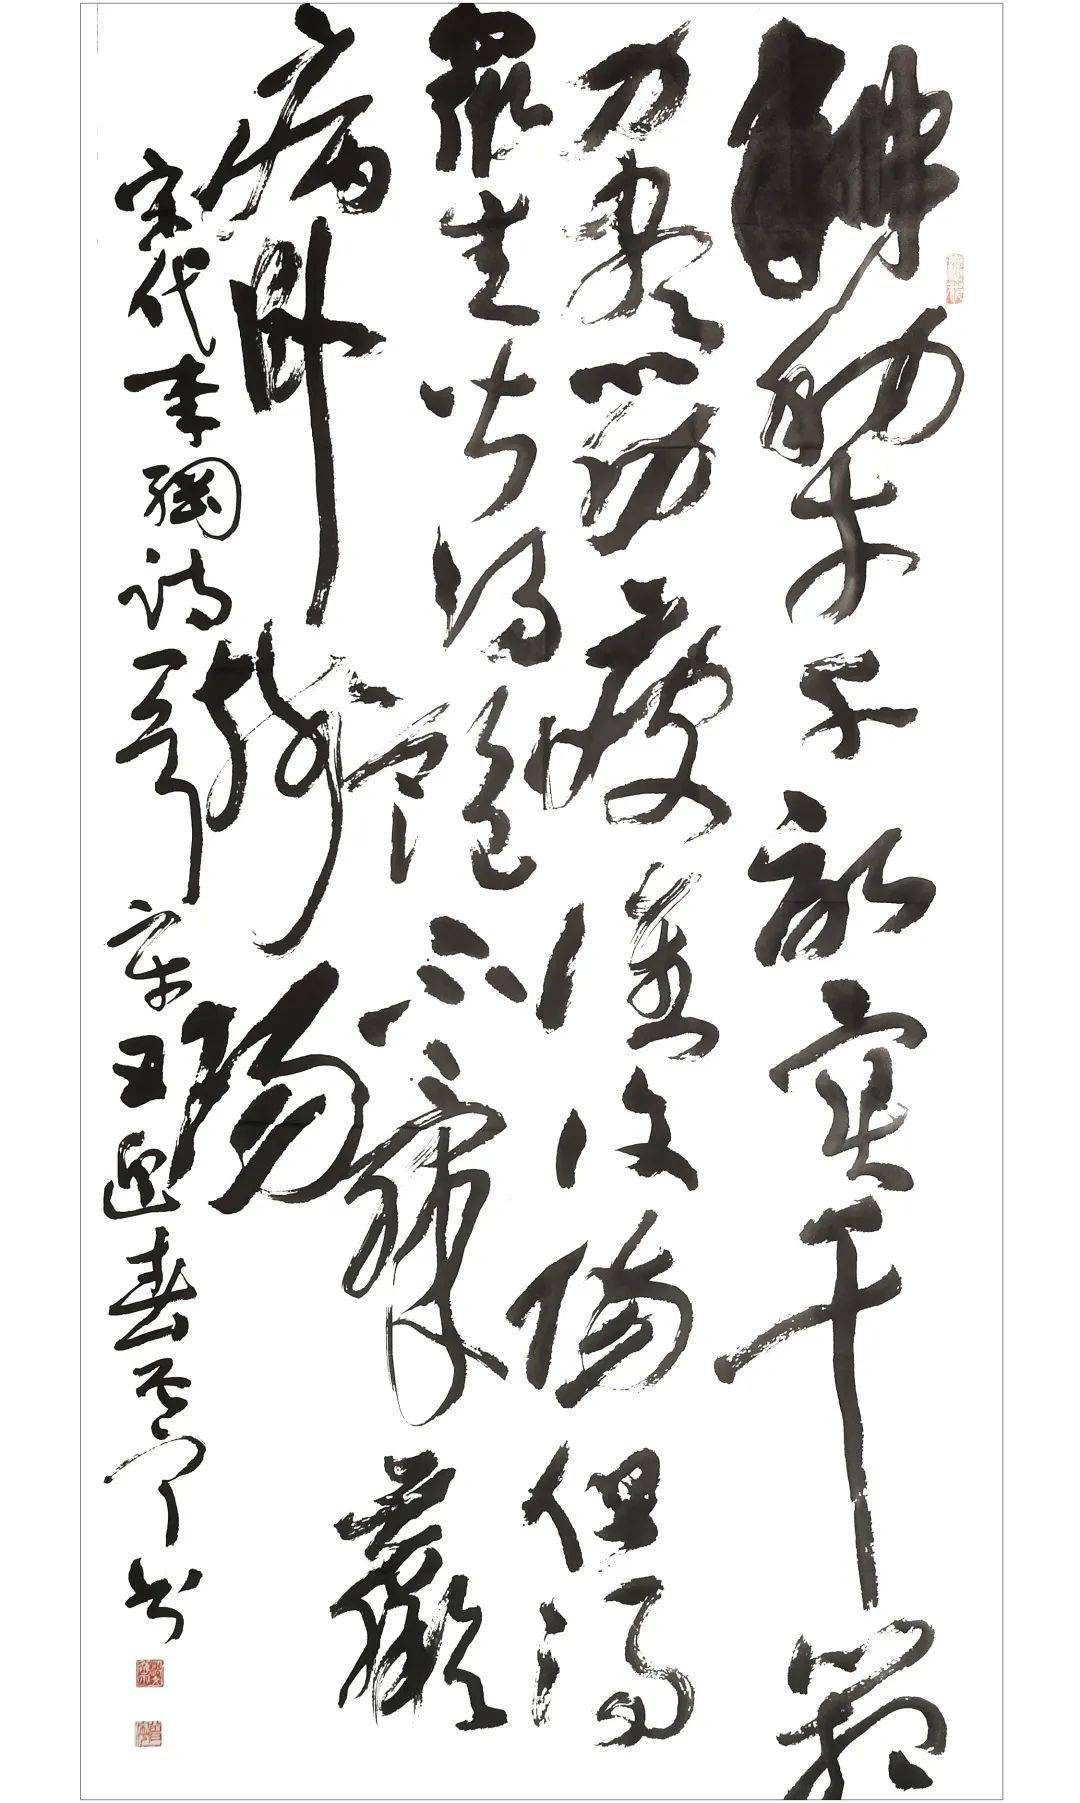 耕犁千亩实千箱
力尽筋疲谁复伤但得
众生皆得饱不辞羸
病卧残阳
宋代李纲诗
辛丑迎春
书